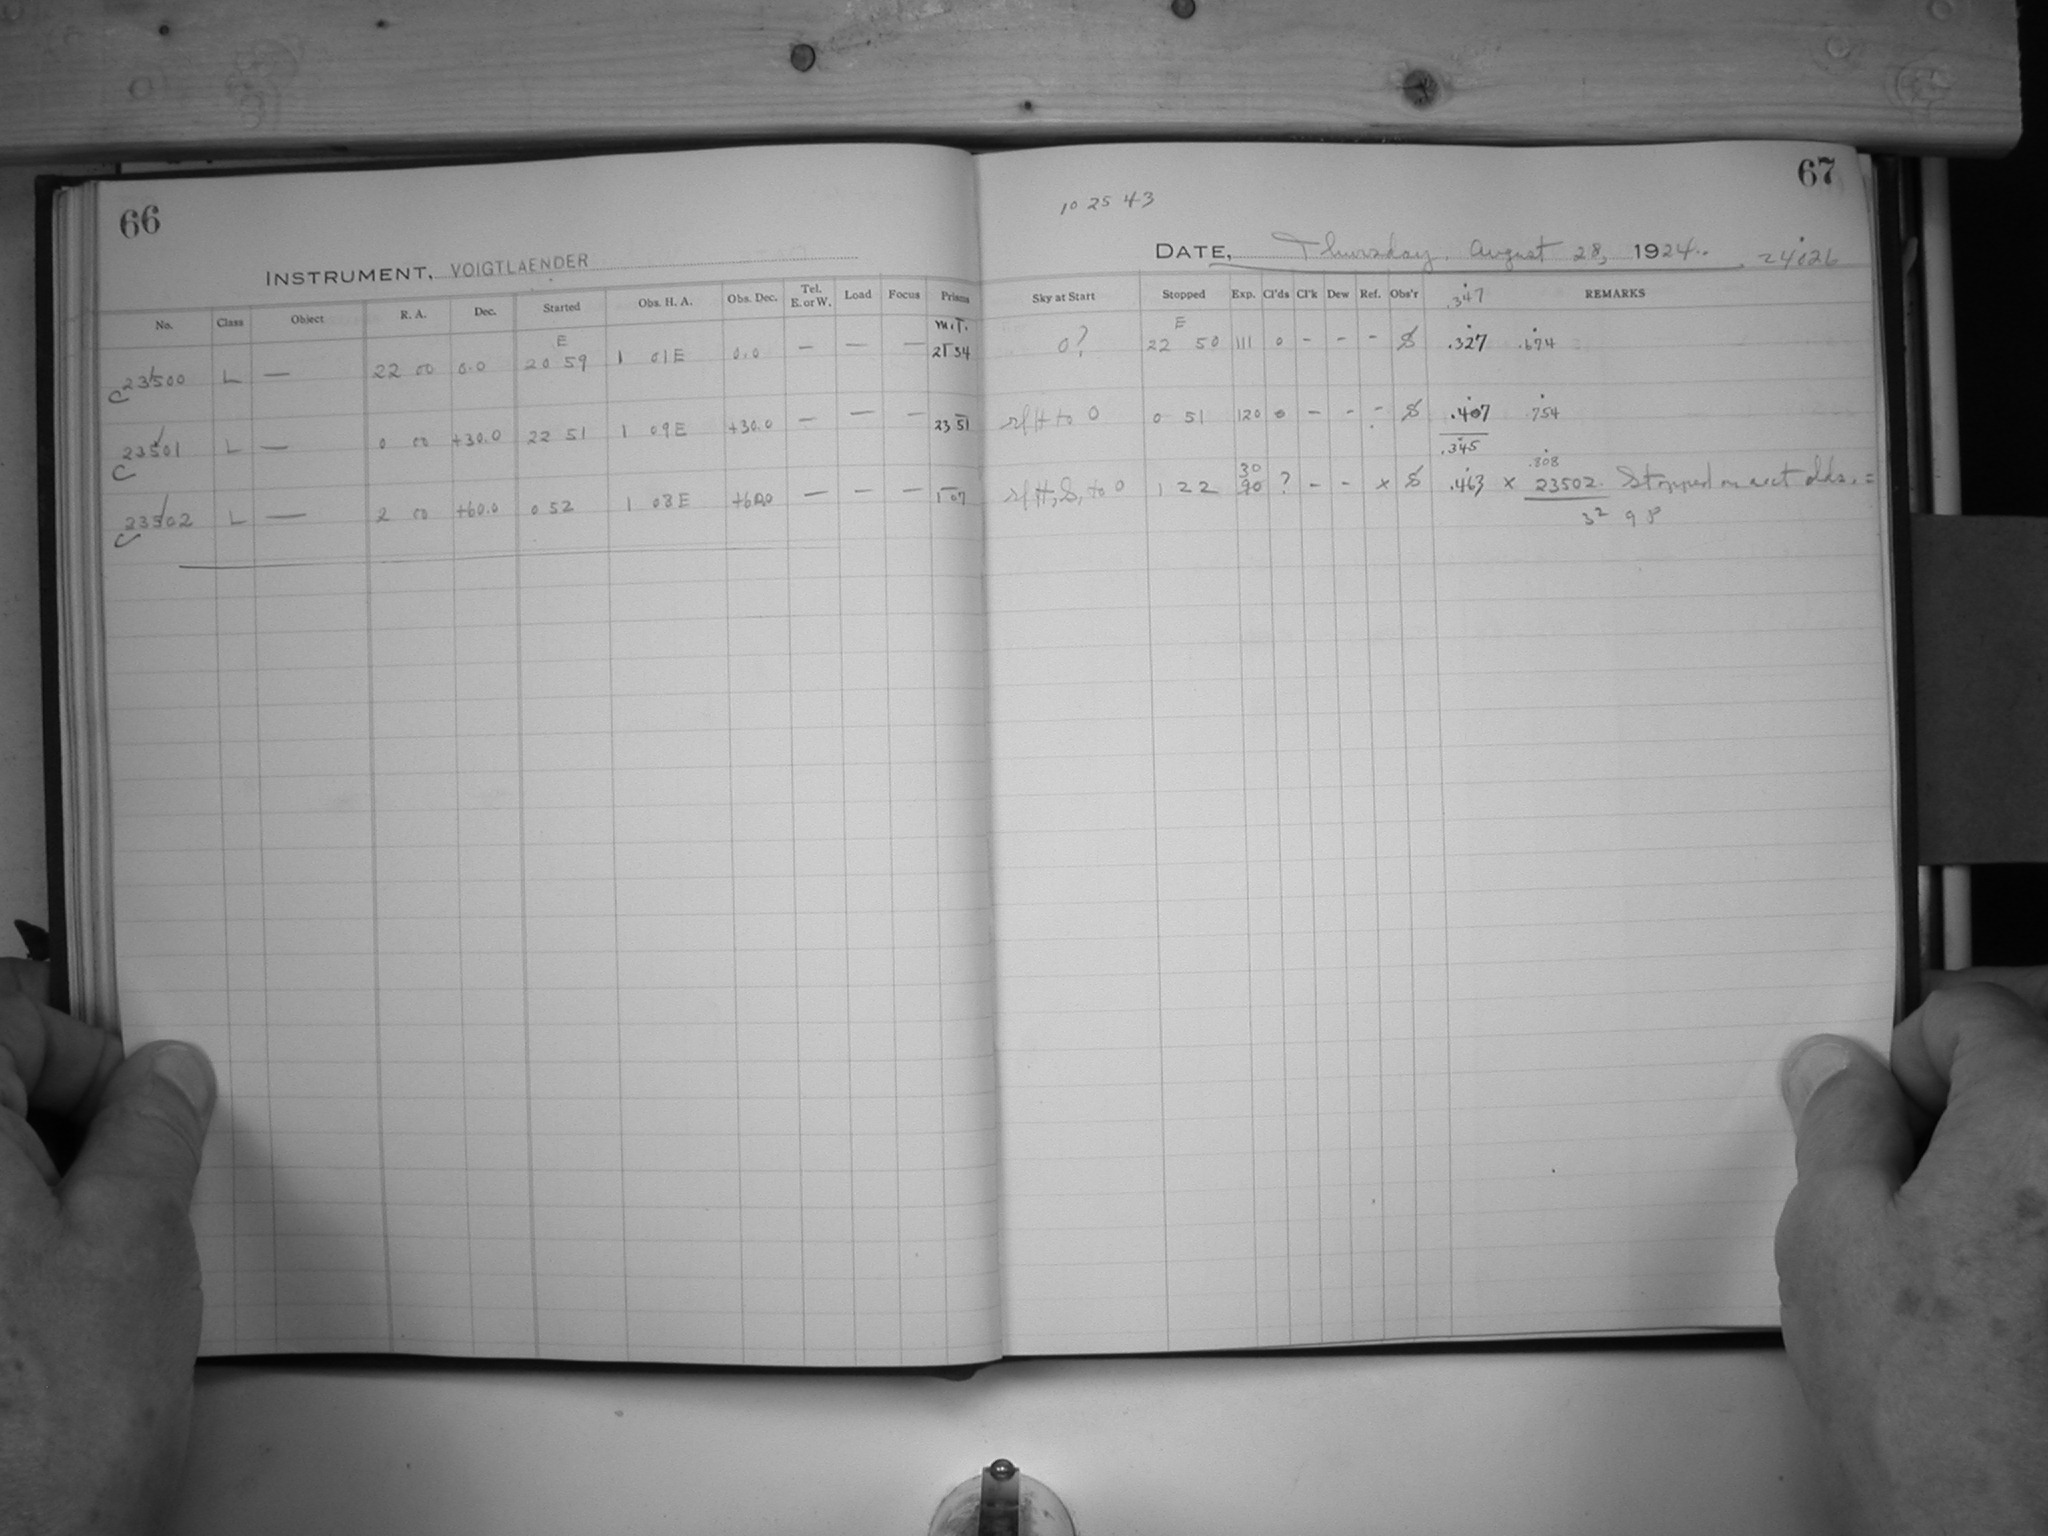 66
INSTRUMENT, VOIGTLAENDER
No. Class Object R. A. Dec. Started Obs. H. A. Obs. Dec. Tel. E. or W. Load Focus Prisms
E M.T.
C 23500 L — 22 00 0.0 20 59 1 01E 0.0 — — — 21 54
C 23501 L — 0 00 +30.0 22 51 1 09E +30.0 — — — 23 51
C 23502 L — 2 00 +60.0 0 52 1 08E +60.0 — — — 1 07
67
10 25 43
DATE, Thursday, August 28, 1924. 24026
Sky at Start Stopped Exp. Cl'ds Cl'k Dew Ref. Obs'r .347 REMARKS
E
0? 22 50 111 0 - - - S .327 .674
to 0 0 51 120 0 - - - S .407 .754
.345
30 .808
to 0 1 22 90 ? - - x S .463 x 23502. Stopped on acct clds. =
32 98